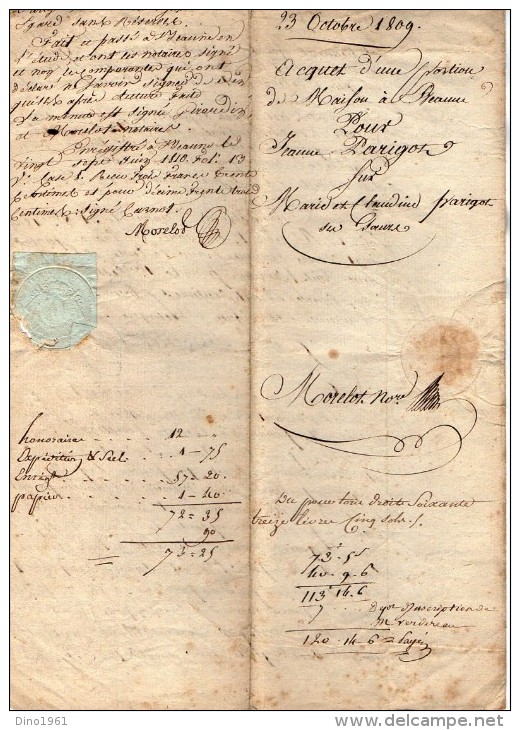 grand sans réserve
Fait et passé à Beaune en
l'étude et ont les notaires signé
et non les comparantes qui ont
déclaré ne savoir signer de
après lecture faite
La minute est signée
et Morelot notaires
Enregistré à Beaune le
vingt sept Juin 1810. vol. 13
Reçu trois francs trente
centimes et pour décime trente trois
Centimes. signé
Morelot
honoraire 12
Expédition & Scel 1 - 75
Enregt 57 = 20
papier 1 - 40
72 = 35
90
73 = 25
23 Octobre 1809.
Acquet d'une portion
de Maison à Beaune
Pour
Jeanne Parigot
sur
Marie et Claudine parigot
ses Soeurs
Morelot Nore
Du pour tous droits Soixante
treize livres Cinq Sols
73 - 5
40 - 9 - 6
113 14 - 6
7 dt d'Inscription de
120 - 14 - 6 = payé
Dino1961